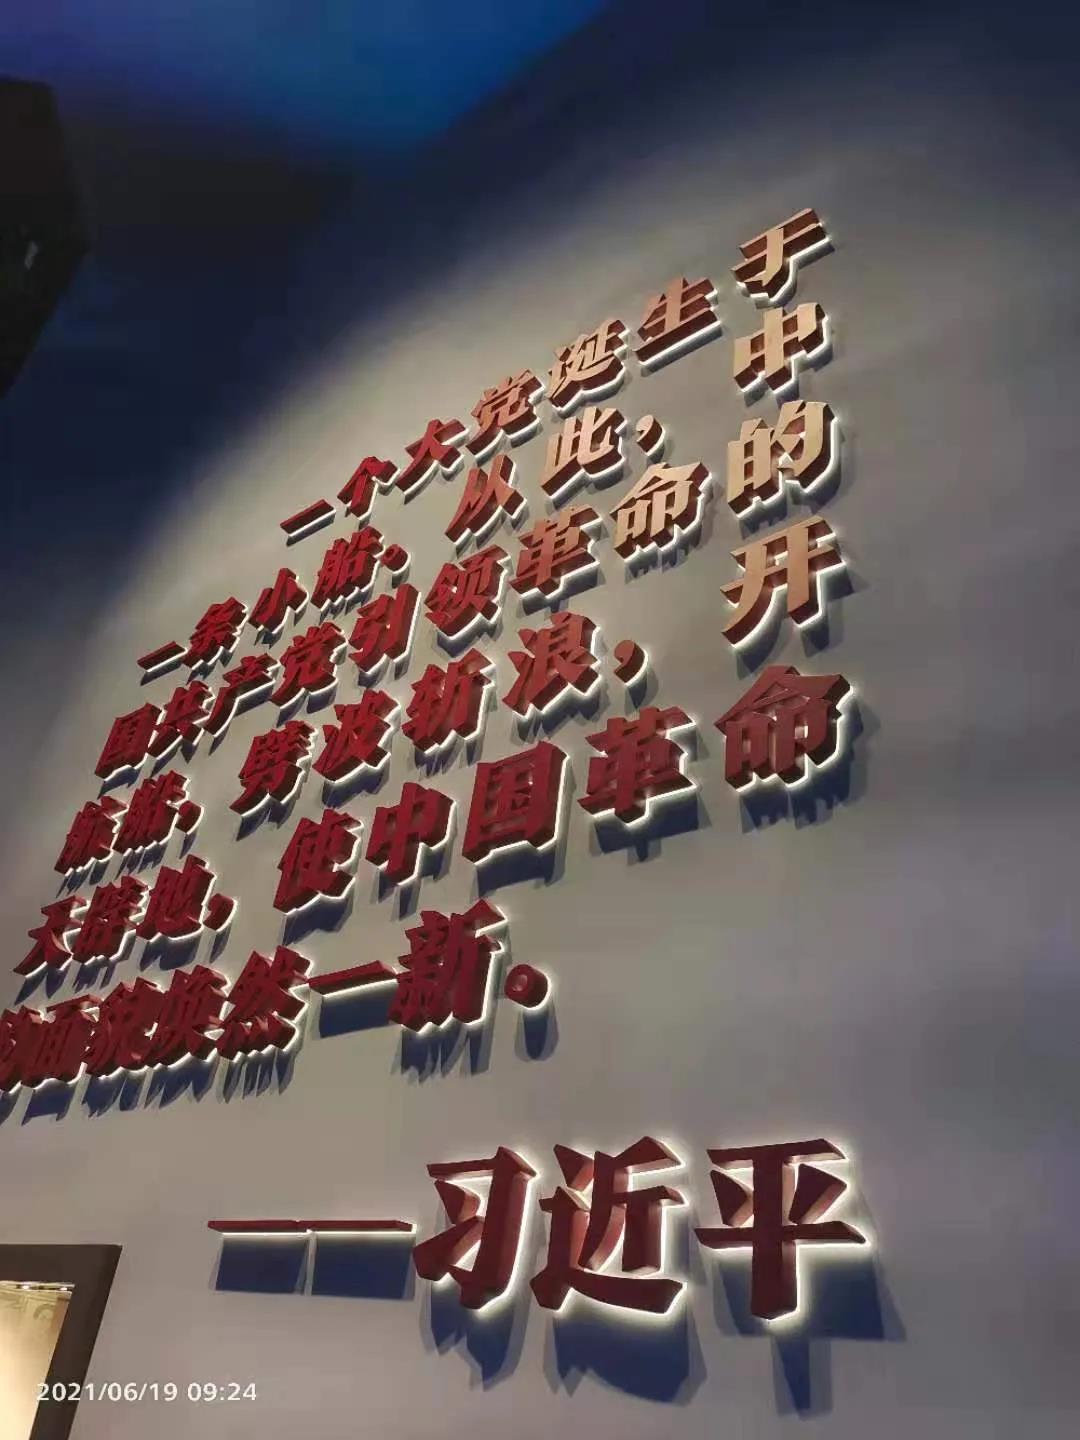 一个大党诞生于
一条小船。从此，中
国共产党引领革命的
航船，劈波斩浪，开
天辟地，使中国革命
的面貌焕然一新。
——习近平
2021/06/19 09:24